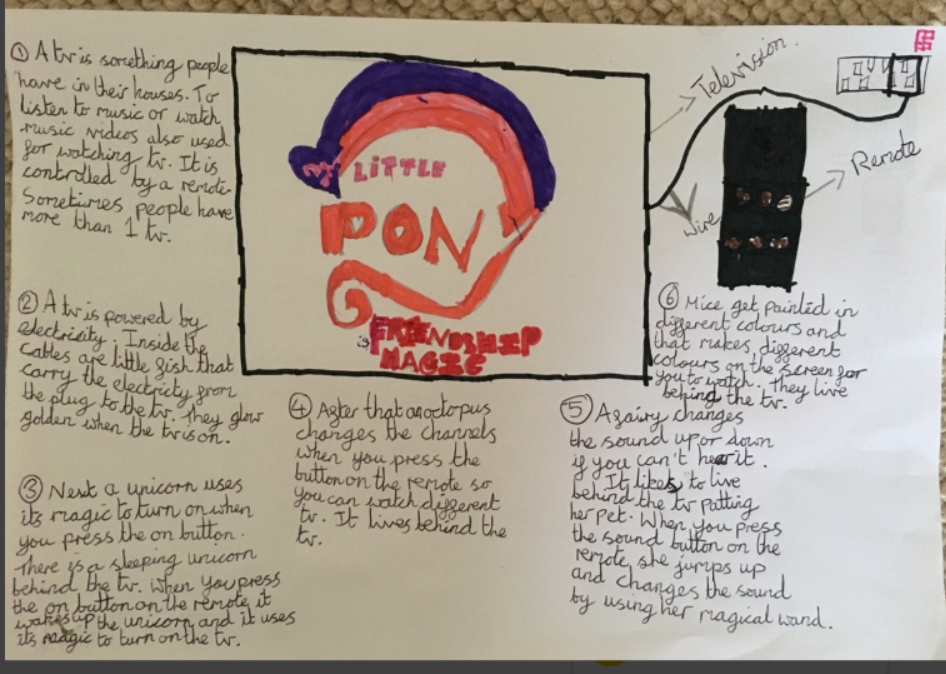 ① A tv is something people
have in their houses. To
listen to music or watch
music videos also used
for watching tv. It is
controlled by a remote.
Sometimes people have
more than 1 tv.
② A tv is powered by
electricity. Inside the
cables are little fish that
carry the electricity from
the plug to the tv. They glow
golden when the tv is on.
③ Next a unicorn uses
its magic to turn on when
you press the on button.
There is a sleeping unicorn
behind the tv. When you press
the on button on the remote it
wakes up the unicorn and it uses
its magic to turn on the tv.
MY LITTLE
PONY
is FRIENDSHIP
MAGIC
Television.
Wire
Remote
④ After that an octopus
changes the channels
when you press the
button on the remote so
you can watch different
tv. It lives behind the
tv.
⑤ A fairy changes
the sound up or down
if you can't hear it.
It likes to live
behind the tv patting
her pet. When you press
the sound button on the
remote, she jumps up
and changes the sound
by using her magical wand.
⑥ Mice get painted in
different colours and
that makes different
colours on the screen for
you to watch. They live
behind the tv.